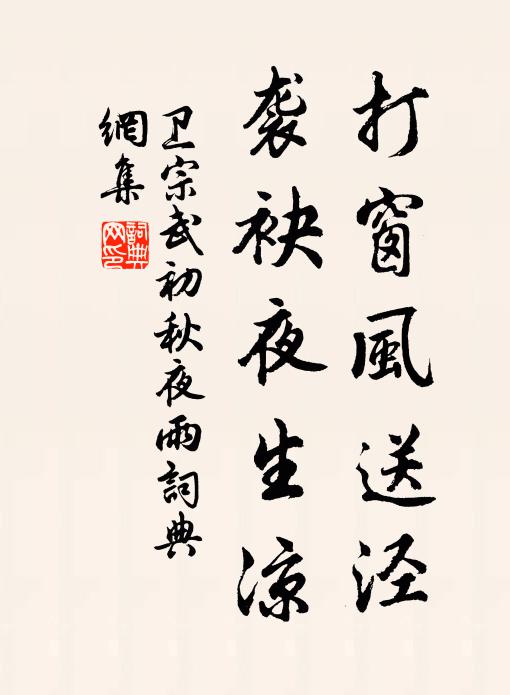 打窗風送泾
袭袂夜生凉
卫宗武初秋夜雨詞典
網集
詞典
网印